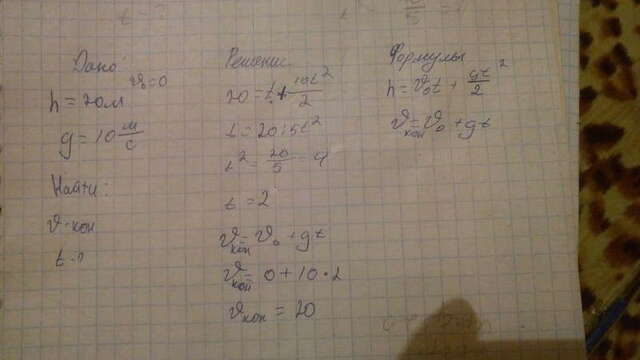 Дано:
υ₀=0
h=20м
g=10 м/с
Найти:
υ-кон
t=?
Решение
20=t+10t²/2
t=20:5t²
t²=20/5=4
t=2
υкон=υ₀+gt
υкон=0+10·2
υкон=20
Формулы
h=υ₀t+gt²/2
υкон=υ₀+gt